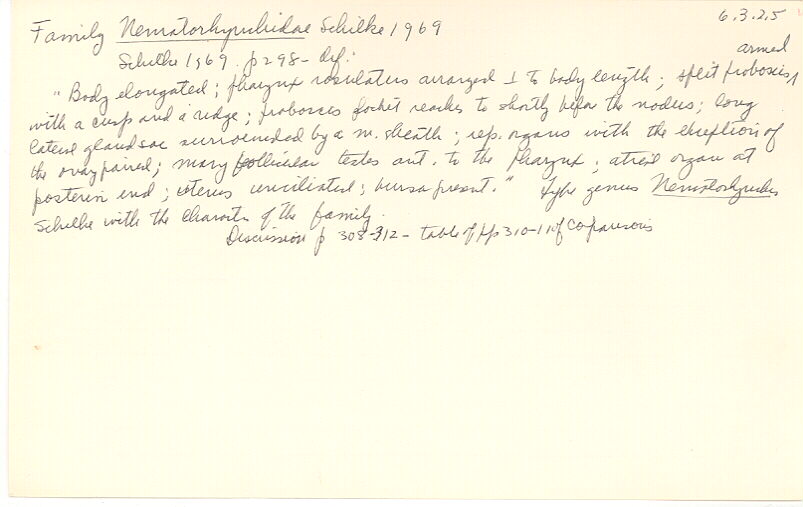 6.3.2.5
Family Nematorhynchidae Schilke 1969
Schilke 1969 p 298 - def:
armed
"Body elongated; pharynx rosulatus arranged ⊥ to body length; split proboscis
with a cusp and a ridge; proboscis pocket reaches to shortly before the nodus; long
lateral gland sac surrounded by a m. sheath; rep. organs with the exception of
the ovary paired; many follicular testes ant. to the pharynx; atrial organ at
posterior end; uterus unciliated; bursa present." Type genus Nematorhynchus
Schilke with the characters of the family.
Discussion p 308-312 - table of pp 310-11 of comparisons